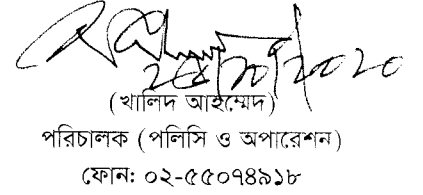 ২৫/১০/২০২০
(খালিদ আহম্মেদ)
পরিচালক (পলিসি ও অপারেশন)
ফোন: ০২-৫৫০৭৪৯১৮